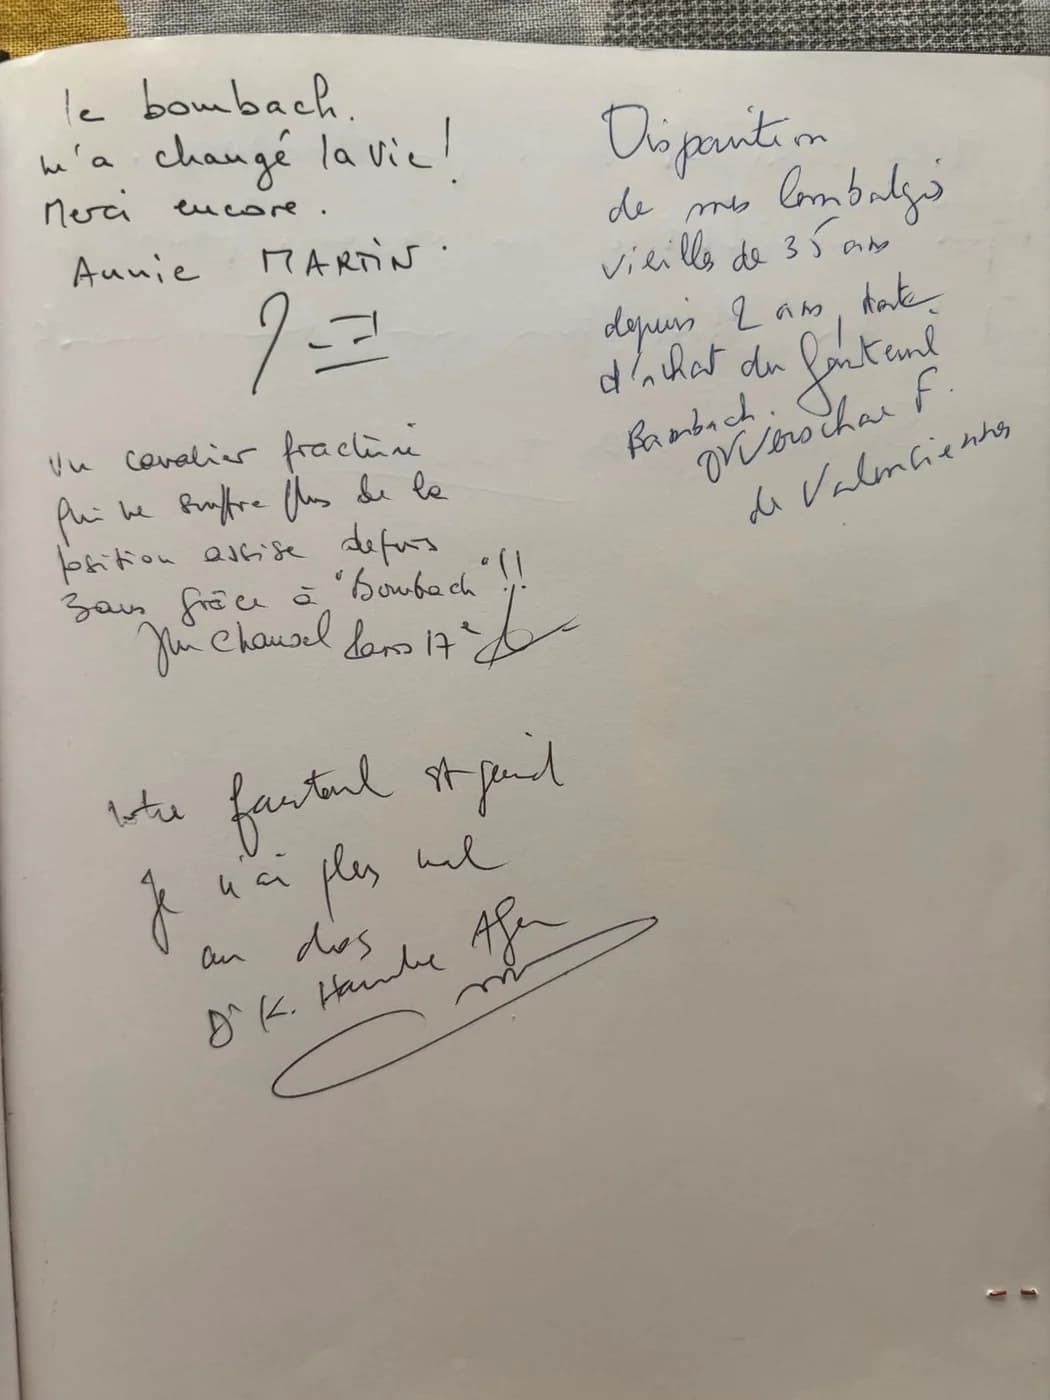 le bombach.
m'a changé la vie!
Merci encore.
Annie MARTIN.
Un cavalier fracturé
qui ne souffre plus de la
position assise depuis
3ans grâce à "Bombach"!!
Chancel Paris 17e
Votre fauteuil est génial
Je n'ai plus mal
au dos
Dr K. Agen
Disparition
de mes lombalgies
vieilles de 35 ans
depuis 2 ans, date
d'achat du fauteuil
Bambach.
F.
de Valenciennes